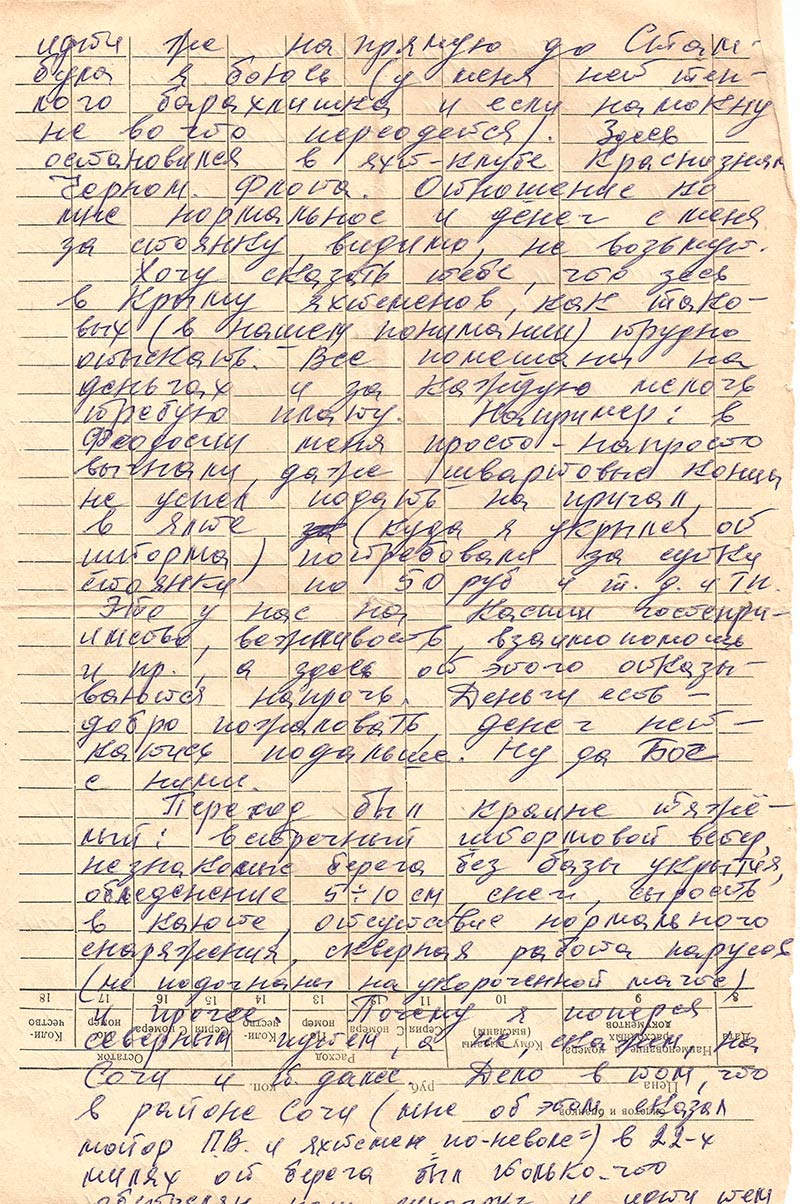 идти же на прямую до Стам-
була я боюсь (у меня нет теп-
лого барахлишка и если намокну
не во что переодется). Здесь
остановился в яхт-клубе Краснознам
Черном. Флота. Отношение ко
мне нормальное и денег с меня
за стоянку, видимо, не возьмут.
Хочу сказать тебе, что здесь
в Крыму яхтсменов, как тако-
вых (в нашем понимании) трудно
отыскать. Все помешаны на
деньгах и за каждую мелочь
требую плату. Например: в
Феодосии меня просто-напросто
выгнали, даже швартовые концы
не успел подать на причал,
в Ялте (куда я укрылся от
шторма) потребовали за сутки
стоянки по 50 руб и т. д. и тп.
Это у нас на Каспии гостепри-
имство, вежливость, взаимопомощь
и пр., а здесь от этого отказы-
ваются напрочь. Деньги есть -
добро пожаловать, денег нет -
катись подальше. Ну да Бог
с ними.
Переход был крайне тяжё-
лый: встречный штормовой ветер,
незнакомые берега без базы укрытия,
обледенение 5÷10 см, снег, сырость
в каюте, отсутствие нормального
снаряжения, скверная работа парусов
(не подогнаны на укороченной мачте)
и прочее. Почему я поперся
северным путем, а не, скажем на
Сочи и т. далее. Дело в том, что
в районе Сочи (мне об этом сказал
майор П.В. и яхтсмен по-неволе) в 22-х
милях от берега был только-что
и идти тем
8 9 10 11 12 13 14 15 16 17 18
Дата
Наименование и номера расходных документов
Кому выданы (высланы)
Серия С номера
По номер
Коли-чество
Серия С номера
По номер
Коли-чество
Расход
Остаток
Цена руб. коп.
билетов и бланков